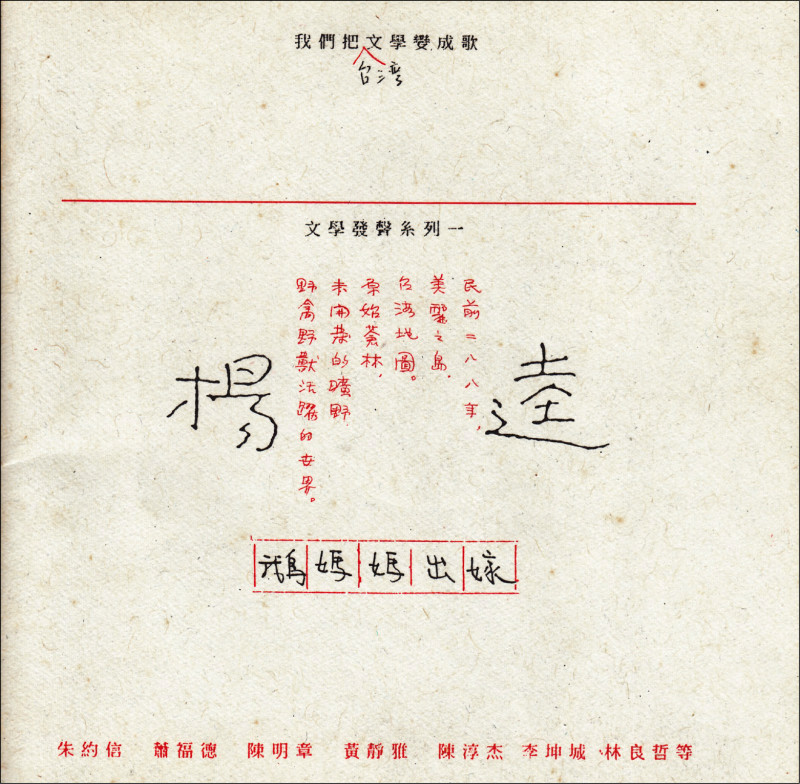 我們把文學變成歌
台湾
文學發聲系列一
民前二八八年，
美麗之島．
台湾地圖。
原始蒼林，
未開葉的曠野．
野禽野獸活躍的世界。
楊逵
鵝媽媽出嫁
朱約信 蕭福德 陳明章 黃靜雅 陳淳杰 李坤城、林良哲等